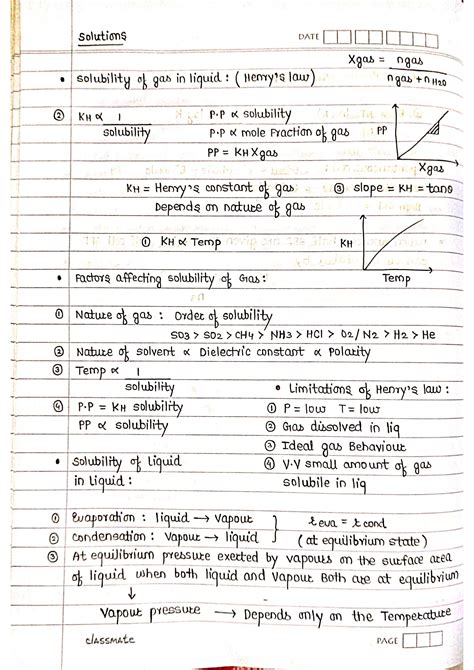 Solutions
DATE
Xgas = ngas / ngas + nH2O
• solubility of gas in liquid : (Henry's law)
② KH ∝ 1 / solubility
P.P ∝ solubility
P.P ∝ mole fraction of gas
PP = KH Xgas
PP
Xgas
KH = Henry's constant of gas
③ slope = KH = tanθ
Depends on nature of gas
① KH ∝ Temp
KH
Temp
• Factors affecting solubility of Gas:
① Nature of gas : Order of solubility
SO3 > SO2 > CH4 > NH3 > HCl > O2/N2 > H2 > He
② Nature of solvent ∝ Dielectric constant ∝ Polarity
③ Temp ∝ 1 / solubility
④ P.P = KH solubility
PP ∝ solubility
• Limitations of Henry's law :
① P = low T = low
② Gas dissolved in liq
③ Ideal gas Behaviour
④ V.V small amount of gas
solubile in liq
• Solubility of Liquid
in Liquid :
① Evaporation : liquid → Vapour
② Condensation : Vapour → liquid
r eva = r cond
(at equilibrium state)
③ At equilibrium pressure exerted by vapours on the surface area
of liquid when both liquid and vapour Both are at equilibrium
↓
Vapour pressure → Depends only on the Temperature
classmate
PAGE